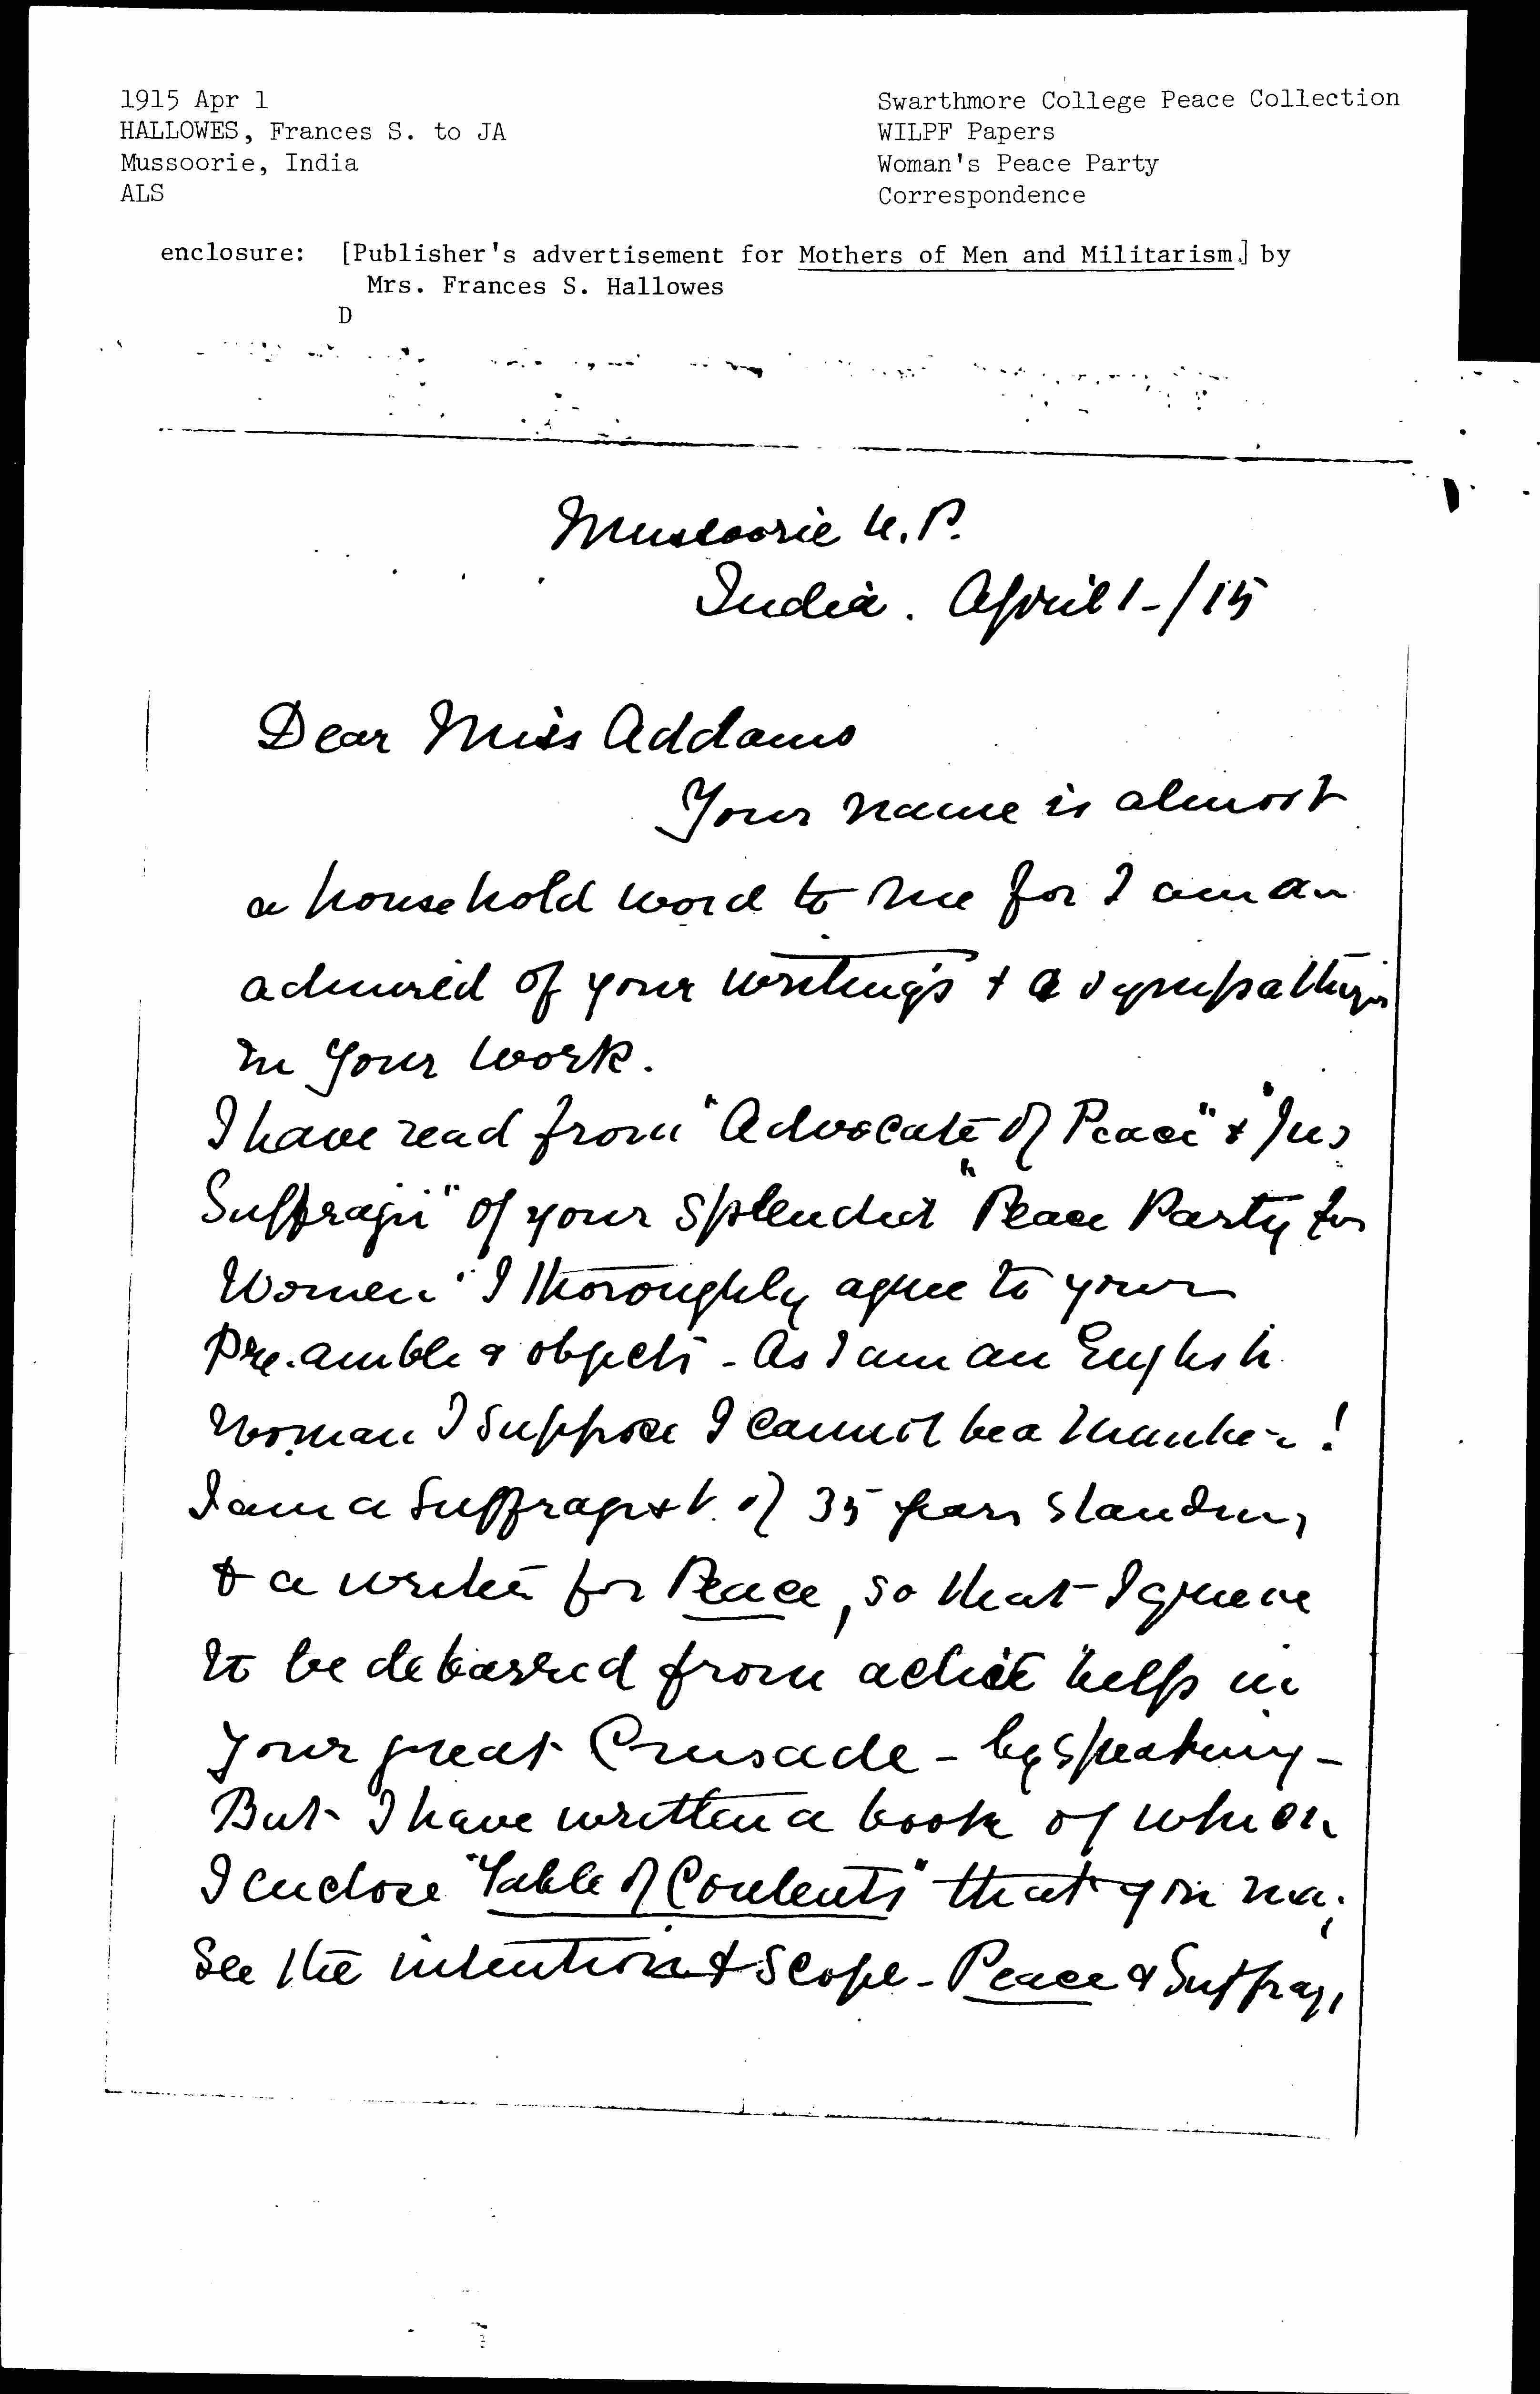 1915 Apr 1
HALLOWES, Frances S. to JA
Mussoorie, India
ALS
Swarthmore College Peace Collection
WILPF Papers
Woman's Peace Party
Correspondence
enclosure: [Publisher's advertisement for Mothers of Men and Militarism.] by
Mrs. Frances S. Hallowes
D
Mussoorie U.P.
India. April 1-/15
Dear Miss Addams
Your name is almost
a household word to me for I am an
admirer of your writings & a sympathizer
in your work.
I have read from "Advocate of Peace" & "Jus
Suffragii" of your splendid "Peace Party for
Women" I thoroughly agree to your
Pre.amble & objects - As I am an English
Woman I suppose I cannot be a member!
I am a Suffragist of 35 years standing
& a writer for Peace, so that I grieve
to be debarred from active help in
your great Crusade - by speaking -
But I have written a book of which
I enclose "Table of Contents" that you may
See the intention & Scope - Peace & Suffrage